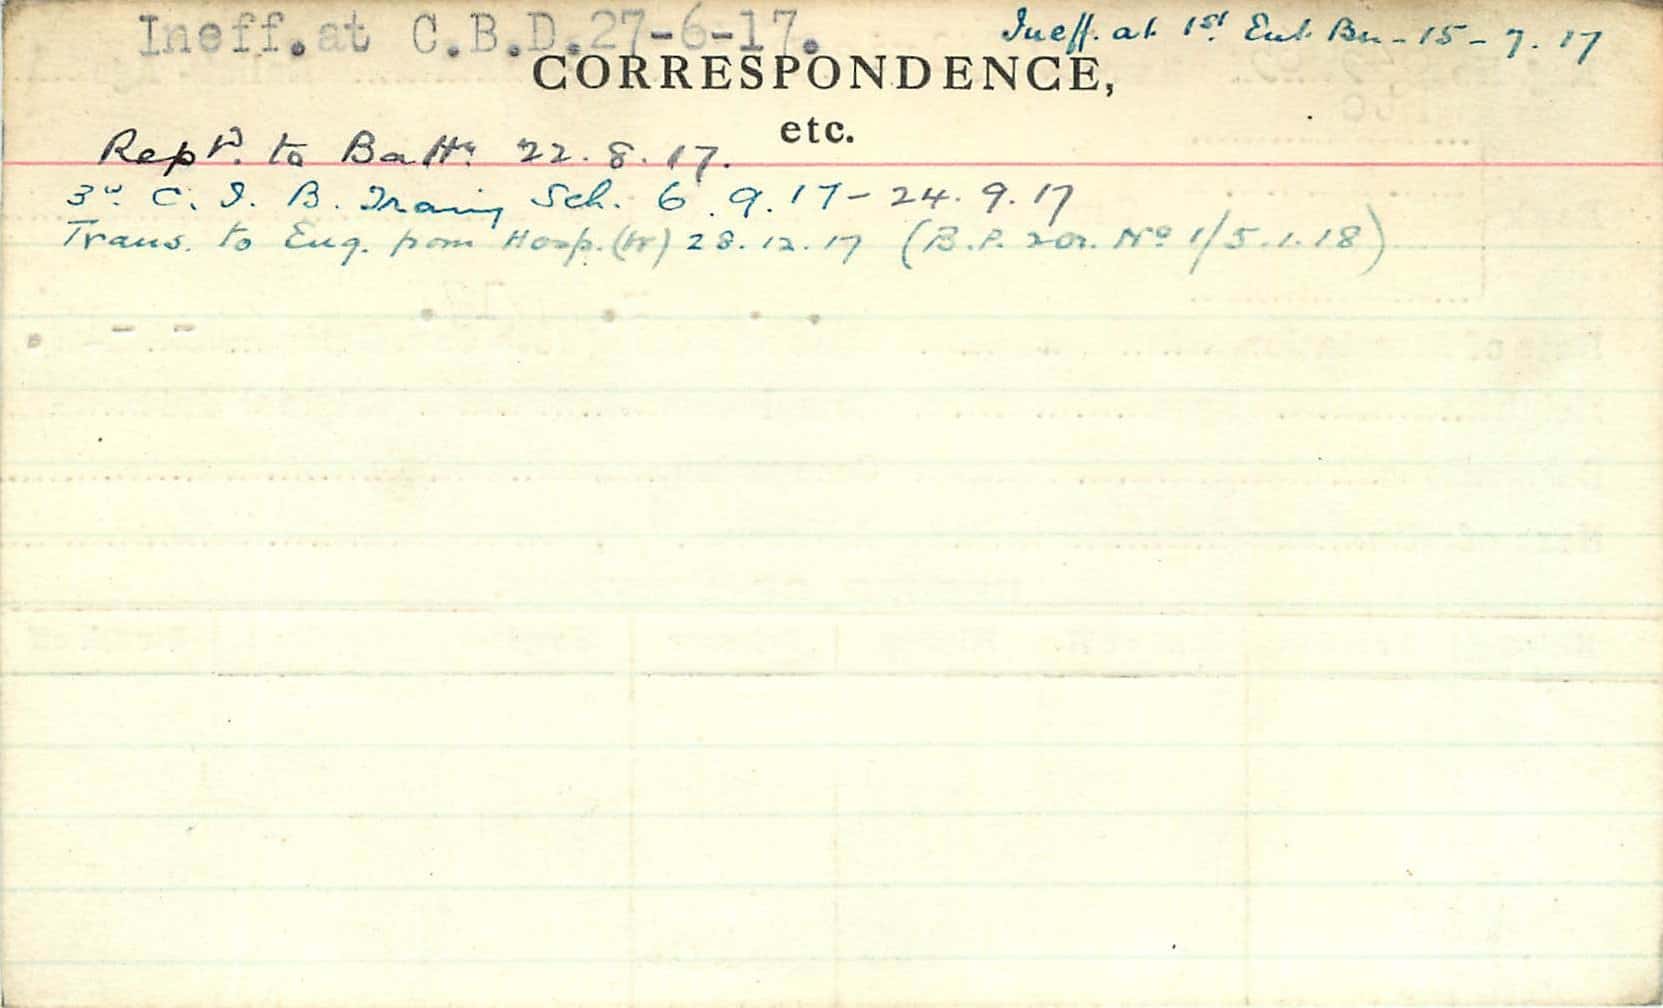 Ineff. at C.B.D. 27-6-17.
Ineff. at 1st Ent. Bn - 15 - 7. 17
CORRESPONDENCE,
etc.
Rept'd. to Battn 22. 8. 17.
3rd C. I. B. Traing Sch. 6. 9. 17 - 24. 9. 17
Trans. to Eng. from Hosp. (W) 28. 12. 17 (B. No 1/5.1.18)